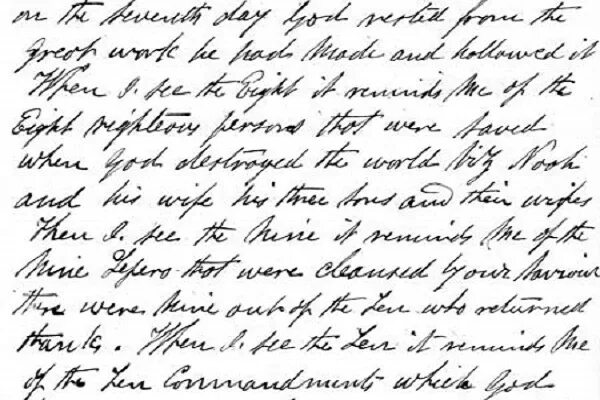 on the seventh day God rested from the
great work he had made and hollowed it
When I see the Eight it reminds me of the
Eight righteous persons that were saved
when God destroyed the world Viz Noah
and his wife his three sons and their wifes
When I see the Nine it reminds Me of the
Nine Lepers that were cleansed by our Saviour
there were Nine out of the Ten who returned
thanks. When I see the Ten it reminds Me
of the Ten Commandments which God